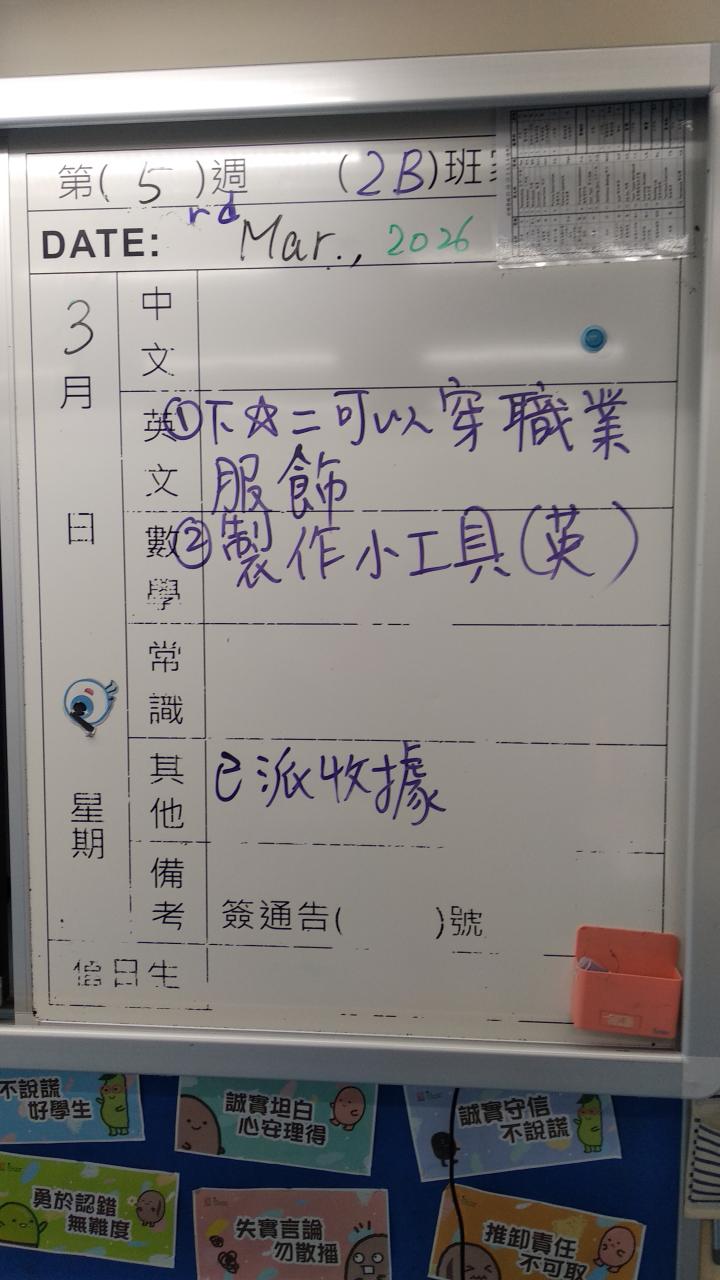 第( 5 )週 (2B)班
rd
DATE: Mar., 2026
3月 日 星期
中文
英文 ①下☆二可以穿職業
服飾
數學 ②製作小工具(英)
常識
其他 已派收據
備考 簽通告( )號
值日生
不說謊
好學生
誠實坦白
心安理得
誠實守信
不說謊
勇於認錯
無難度
失實言論
勿散播
推卸責任
不可取